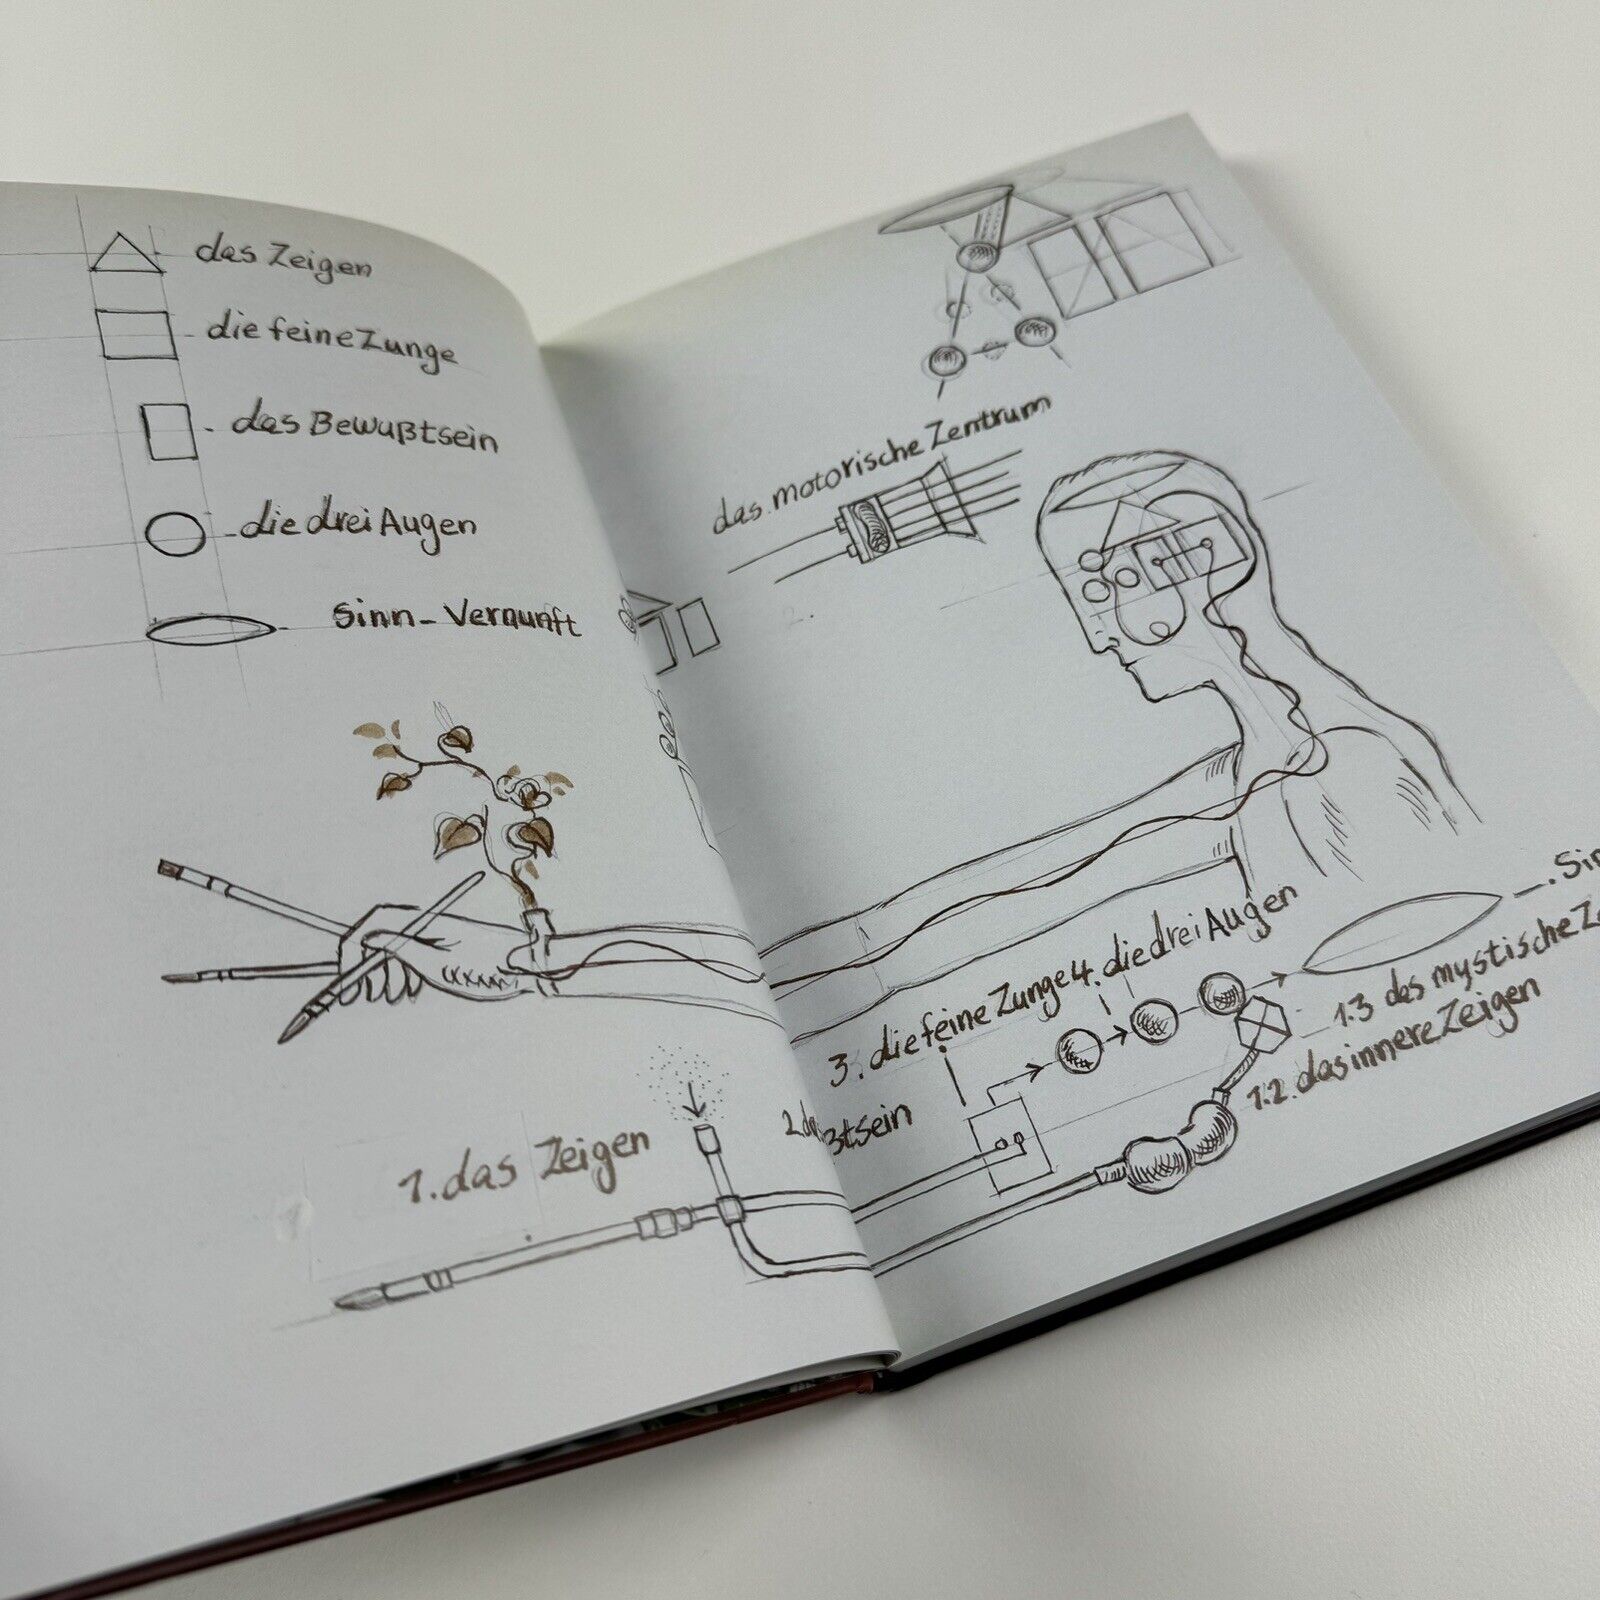 das Zeigen
die feine Zunge
das Bewußtsein
die drei Augen
Sinn-Vernunft
1. das Zeigen
das motorische Zentrum
3. die feine Zunge
4. die drei Augen
Sin
1.3 das mystische Ze
1.2. das innere Zeigen
2. da
ßtsein